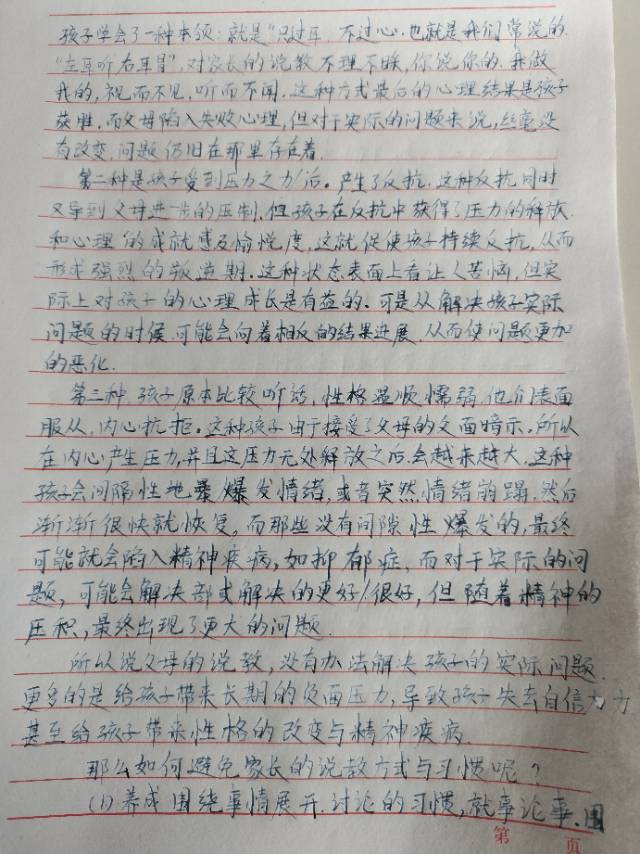 孩子学会了一种本领:就是"只过耳,不过心.也就是我们常说的
"左耳听右耳冒",对家长的说教不理不睬,你说你的.我做
我的,视而不见,听而不闻.这种方式最后的心理结果是孩子
获胜.而父母陷入失败心理,但对于实际的问题来说,丝毫没
有改变,问题仍旧在那里存在着.
第二种是孩子受到压力之力后.产生了反抗.这种反抗同时
又导到父母进一步的压制,但孩子在反抗中获得了压力的释放.
和心理的成就感及愉悦度,这就促使孩子持续反抗,从而
形成强烈的叛逆期.这种状态表面上看让人苦恼,但实
际上对孩子的心理成长是有益的.可是从解决孩子实际
问题的时候,可能会向着相反的结果进展.从而使问题更加
的恶化.
第三种,孩子原本比较听话,性格温顺懦弱,他们表面
服从,内心抗拒.这种孩子由于接受了父母的负面暗示.所以
在内心产生压力,并且这压力无处解放之后,会越来越大,这种
孩子会间隔性地爆发情绪,或者突然情绪的蹋,然后
渐渐很快就恢复,而那些没有间隙性爆发的,最终
可能就会陷入精神疾病,如抑郁症,而对于实际的问
题,可能会解决部或解决的更好/很好,但随着精神的
压积,最终出现了更大的问题.
所以说父母的说教,没有办法解决孩子的实际问题.
更多的是给孩子带来长期的负面压力,导致孩子失去自信力
甚至给孩子带来性格的改变与精神疾病
那么如何避免家长的说教方式与习惯呢?
(1)养成围绕事情展开.讨论的习惯,就事论事.围
第 页